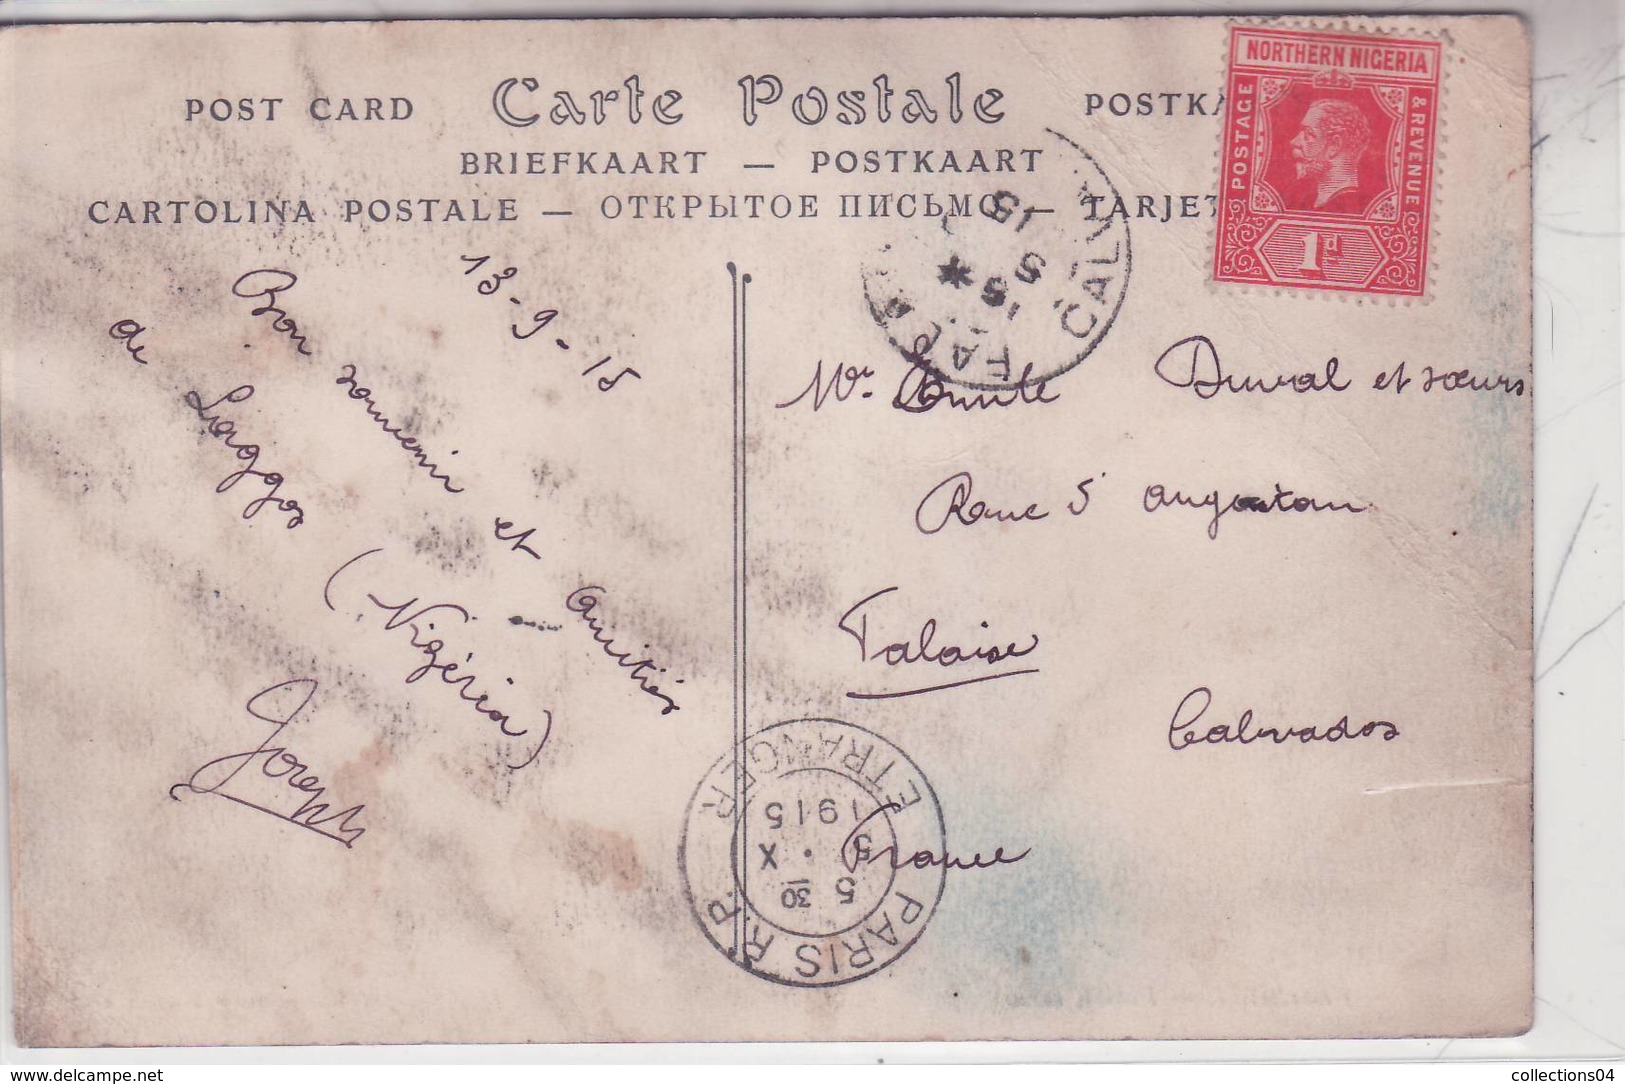 POST CARD Carte Postale POSTKA
BRIEFKAART — POSTKAART
CARTOLINA POSTALE — ОТКРЫТОЕ ПИСЬМО — TARJET
NORTHERN NIGERIA
POSTAGE
& REVENUE
1d
13-9-15
Bon souvenir et amitiés
de Laggos
(Nigéria)
Joseph
CALV
15
5
Mr. Emile Duval et sœurs
Rue
Falaise
Calvados
France
PARIS R.P.
ETRANGER
5 30
5 . X
1915
collections04
www.delcampe.net